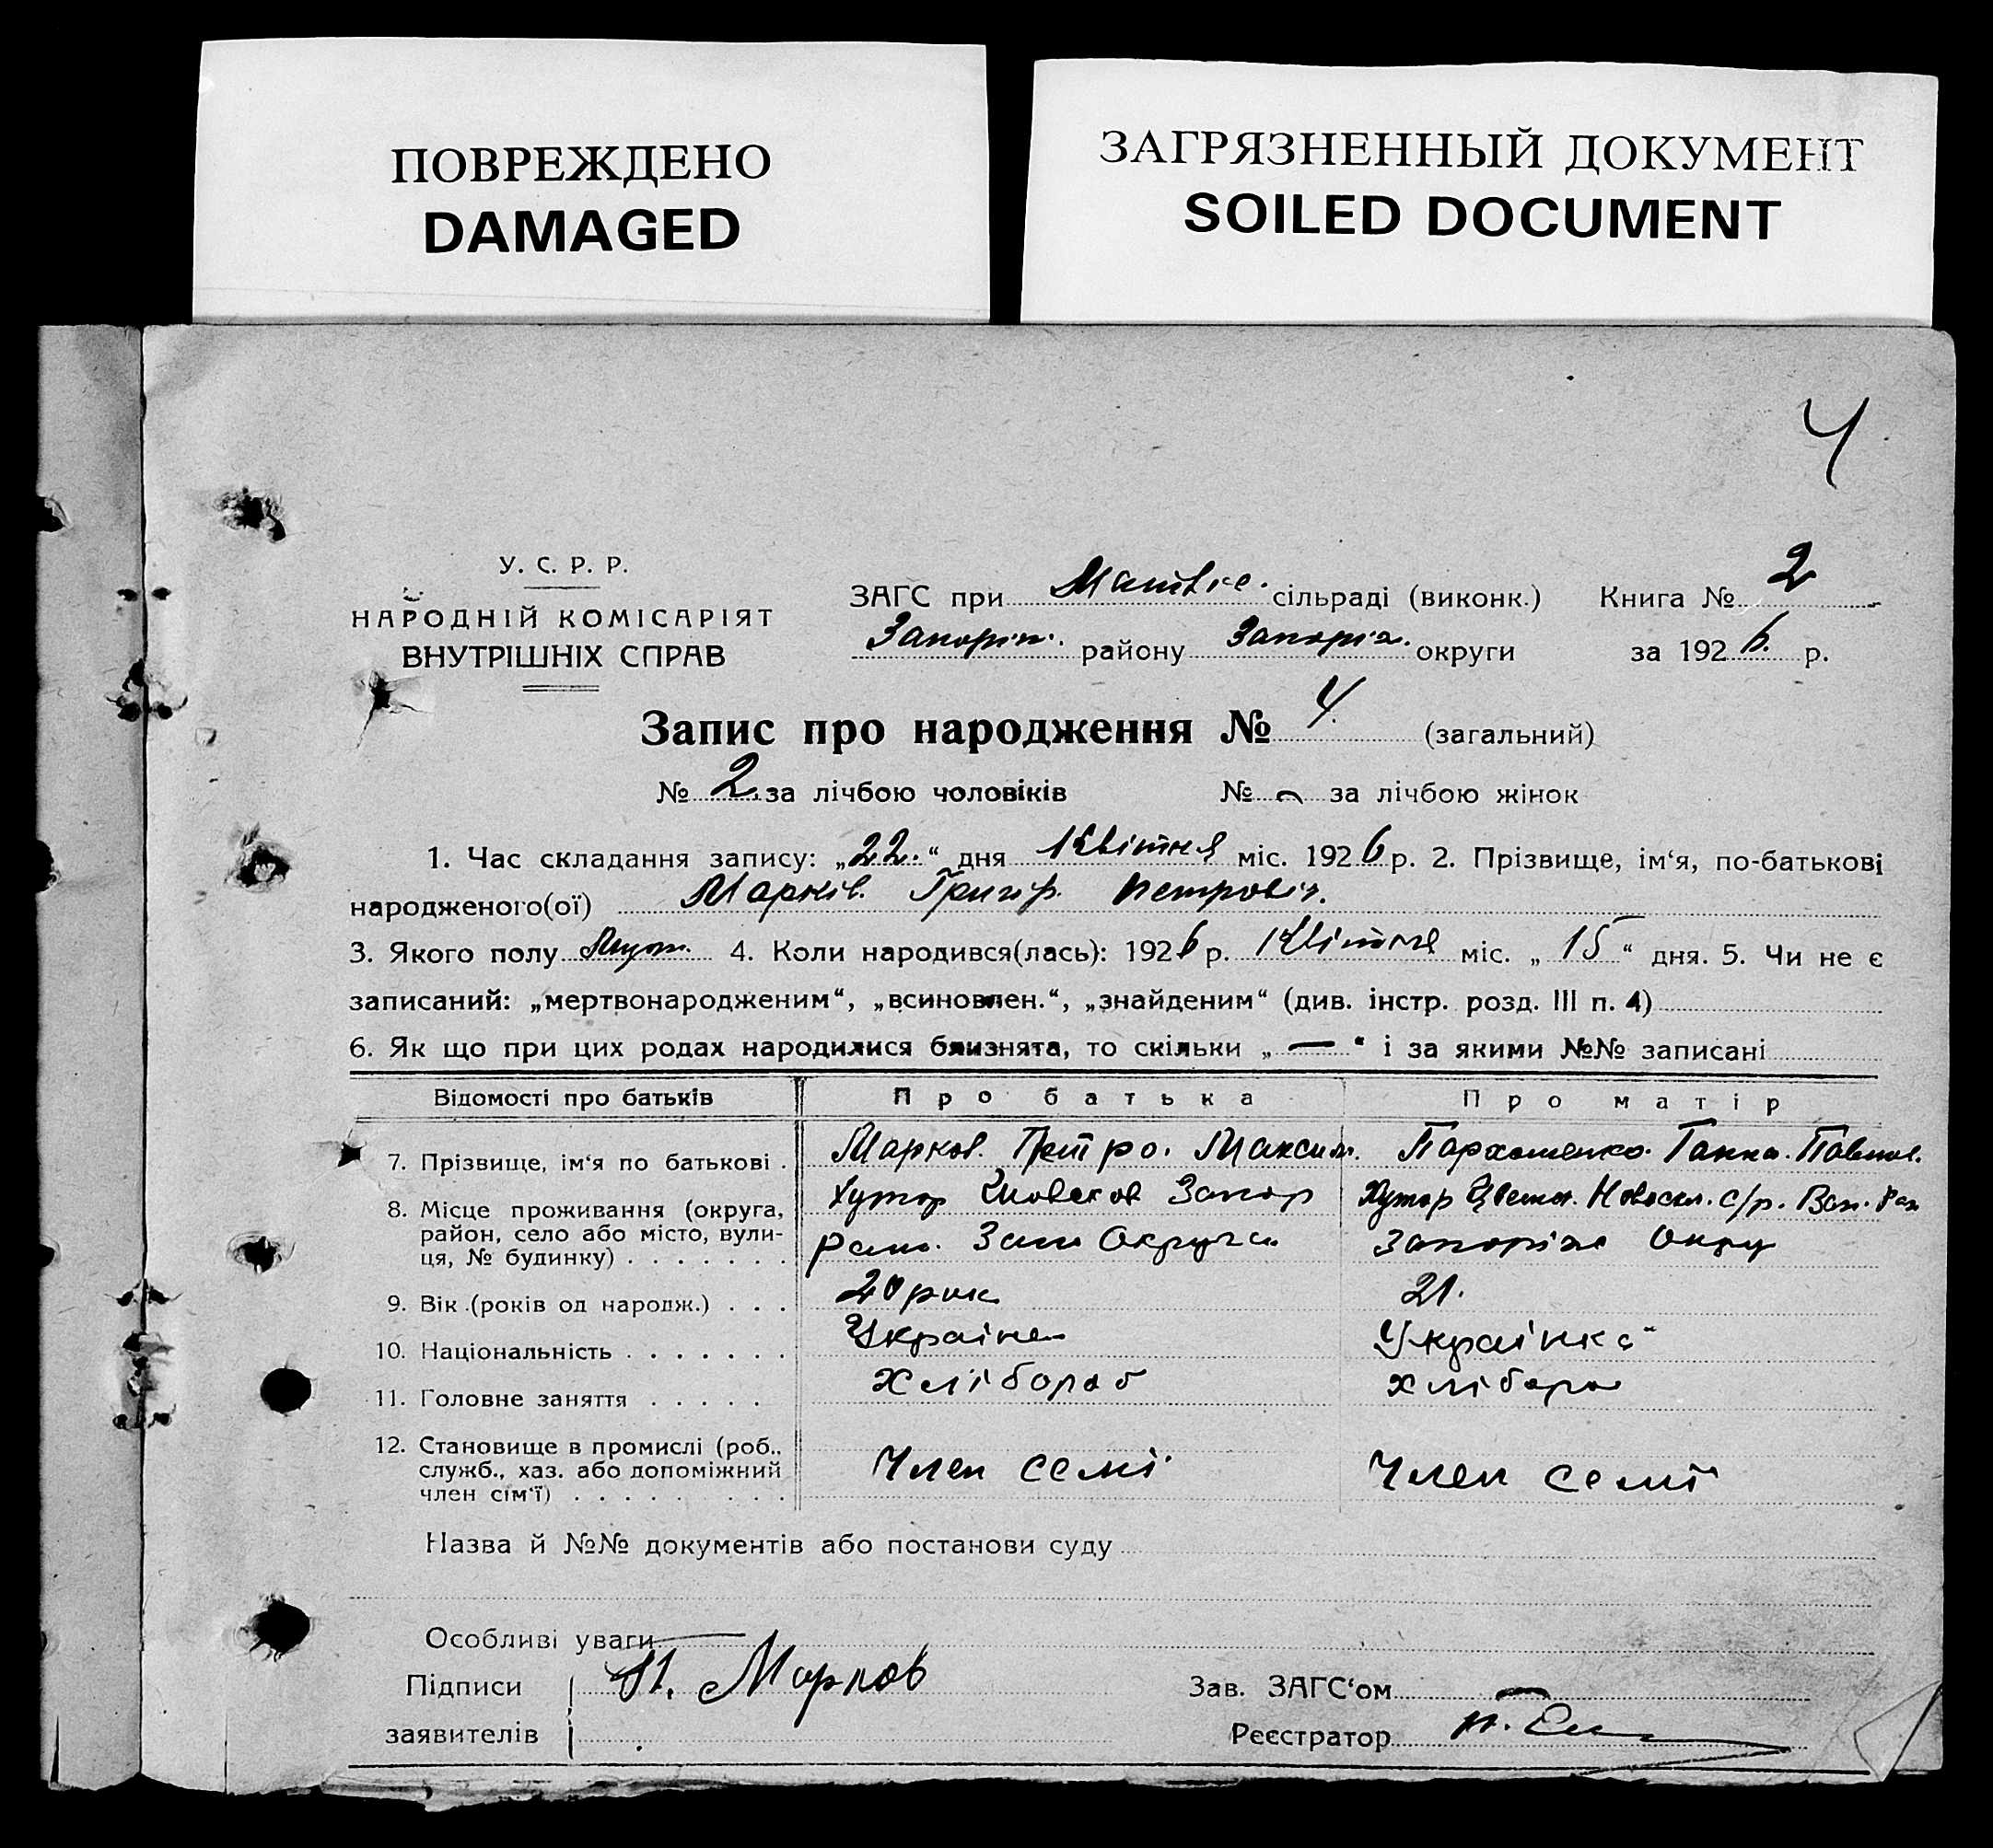 ПОВРЕЖДЕНО
DAMAGED
ЗАГРЯЗНЕННЫЙ ДОКУМЕНТ
SOILED DOCUMENT
4
У. С. Р. Р.
НАРОДНІЙ КОМІСАРІЯТ
ВНУТРІШНІХ СПРАВ
ЗАГС при сільраді (виконк.) Книга № 2
Запоріж. району Запоріз. округи за 1926 р.
Запис про народження № 4. (загальний)
№ 2. за лічбою чоловіків № — за лічбою жінок
1. Час складання запису: „22.“ дня Квітня міс. 1926 р. 2. Прізвище, ім‘я, по-батькові
народженого(ої) Марків. Григір. Петрович.
3. Якого полу Муж. 4. Коли народився(лась): 1926 р. Квітня міс. „15“ дня. 5. Чи не є
записаний: „мертвонародженим“, „всиновлен.“, „знайденим“ (див. інстр. розд. III п. 4)
6. Як що при цих родах народилися близнята, то скільки „—“ і за якими №№ записані
Відомості про батьків Про батька Про матір
7. Прізвище, ім‘я по батькові . Марков. Петро. Максим. Пархоменко. Ганна. Павлов.
8. Місце проживання (округа,
район, село або місто, вули-
ця, № будинку) . . . . . . .
Хутор Запор
Зап Округи
Хутор с/р.
Запоріж Окру
9. Вік (років од народж.) . . . 20 рок 21.
10. Національність . . . . . . . Українец Українка
11. Головне заняття . . . . . Хлібороб Хлібороб
12. Становище в промислі (роб.,
служб., хаз. або допоміжний
член сім‘ї) . . . . . . . . .
Член семї Член семї
Назва й №№ документів або постанови суду
Особливі уваги —
Підписи
заявителів
П. Марков
Зав. ЗАГС‘ом
Реєстратор